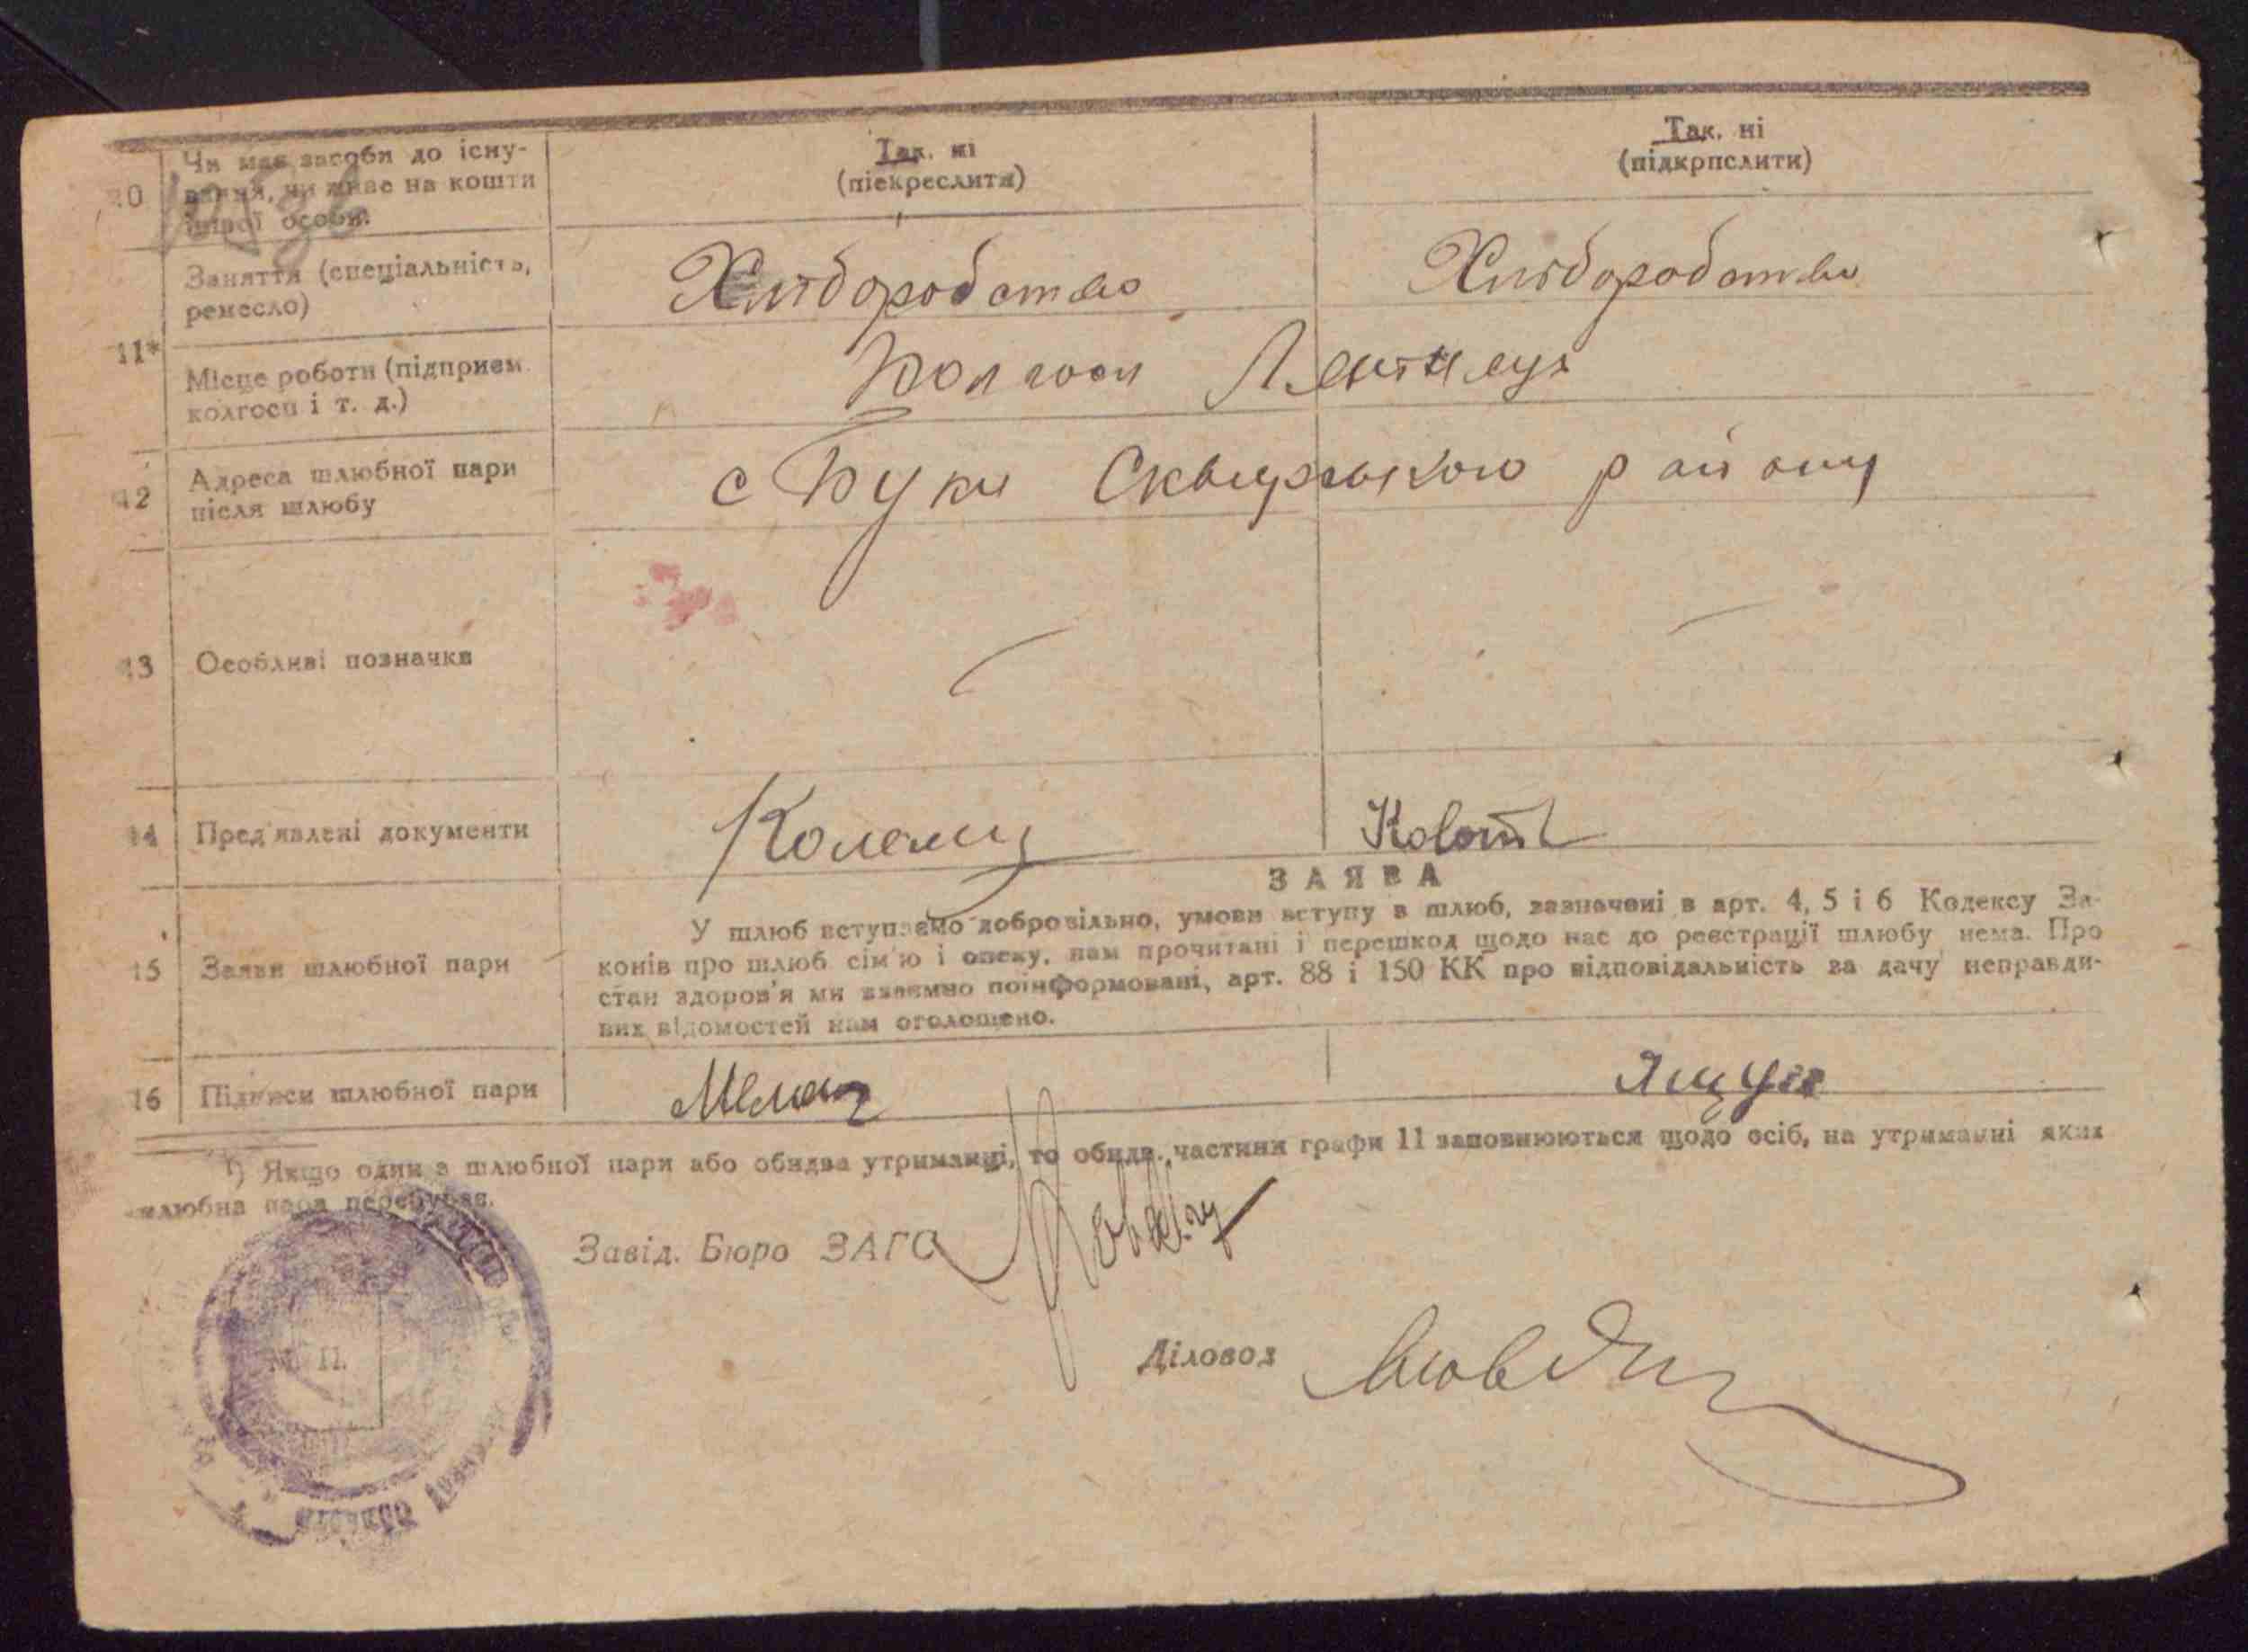 10
Чи має засоби до існу-
вання, чи живе на кошти
іншої особи.
Так, ні
(піекреслити)
Так, ні
(підкрпслити)
11*
Заняття (спеціальність,
ремесло)
Хліборобство
Хліборобство
Місце роботи (підприєм.
колгосп і т. д.)
Колгосп
12
Адреса шлюбної пари
після шлюбу
с Буки Сквирського району
13
Особливі позначки
14
Пред'явлені документи
15
Заяви шлюбної пари
ЗАЯВА
У шлюб вступаємо добровільно, умови вступу в шлюб, зазначені в арт. 4, 5 і 6 Кодексу За-
конів про шлюб сім'ю і опеку, нам прочитані і перешкод щодо нас до реєстрації шлюбу нема. Про
стан здоров'я ми взаємно поінформовані, арт. 88 і 150 КК про відповідальність за дачу неправди-
вих відомостей нам оголошено.
16
Підписи шлюбної пари
Ящук
¹) Якщо один з шлюбної пари або обидва утриманці, то обидв. частини графи 11 заповнюються щодо осіб, на утриманні яких
шлюбна пара перебуває.
Завід. Бюро ЗАГС
М. П.
Діловод